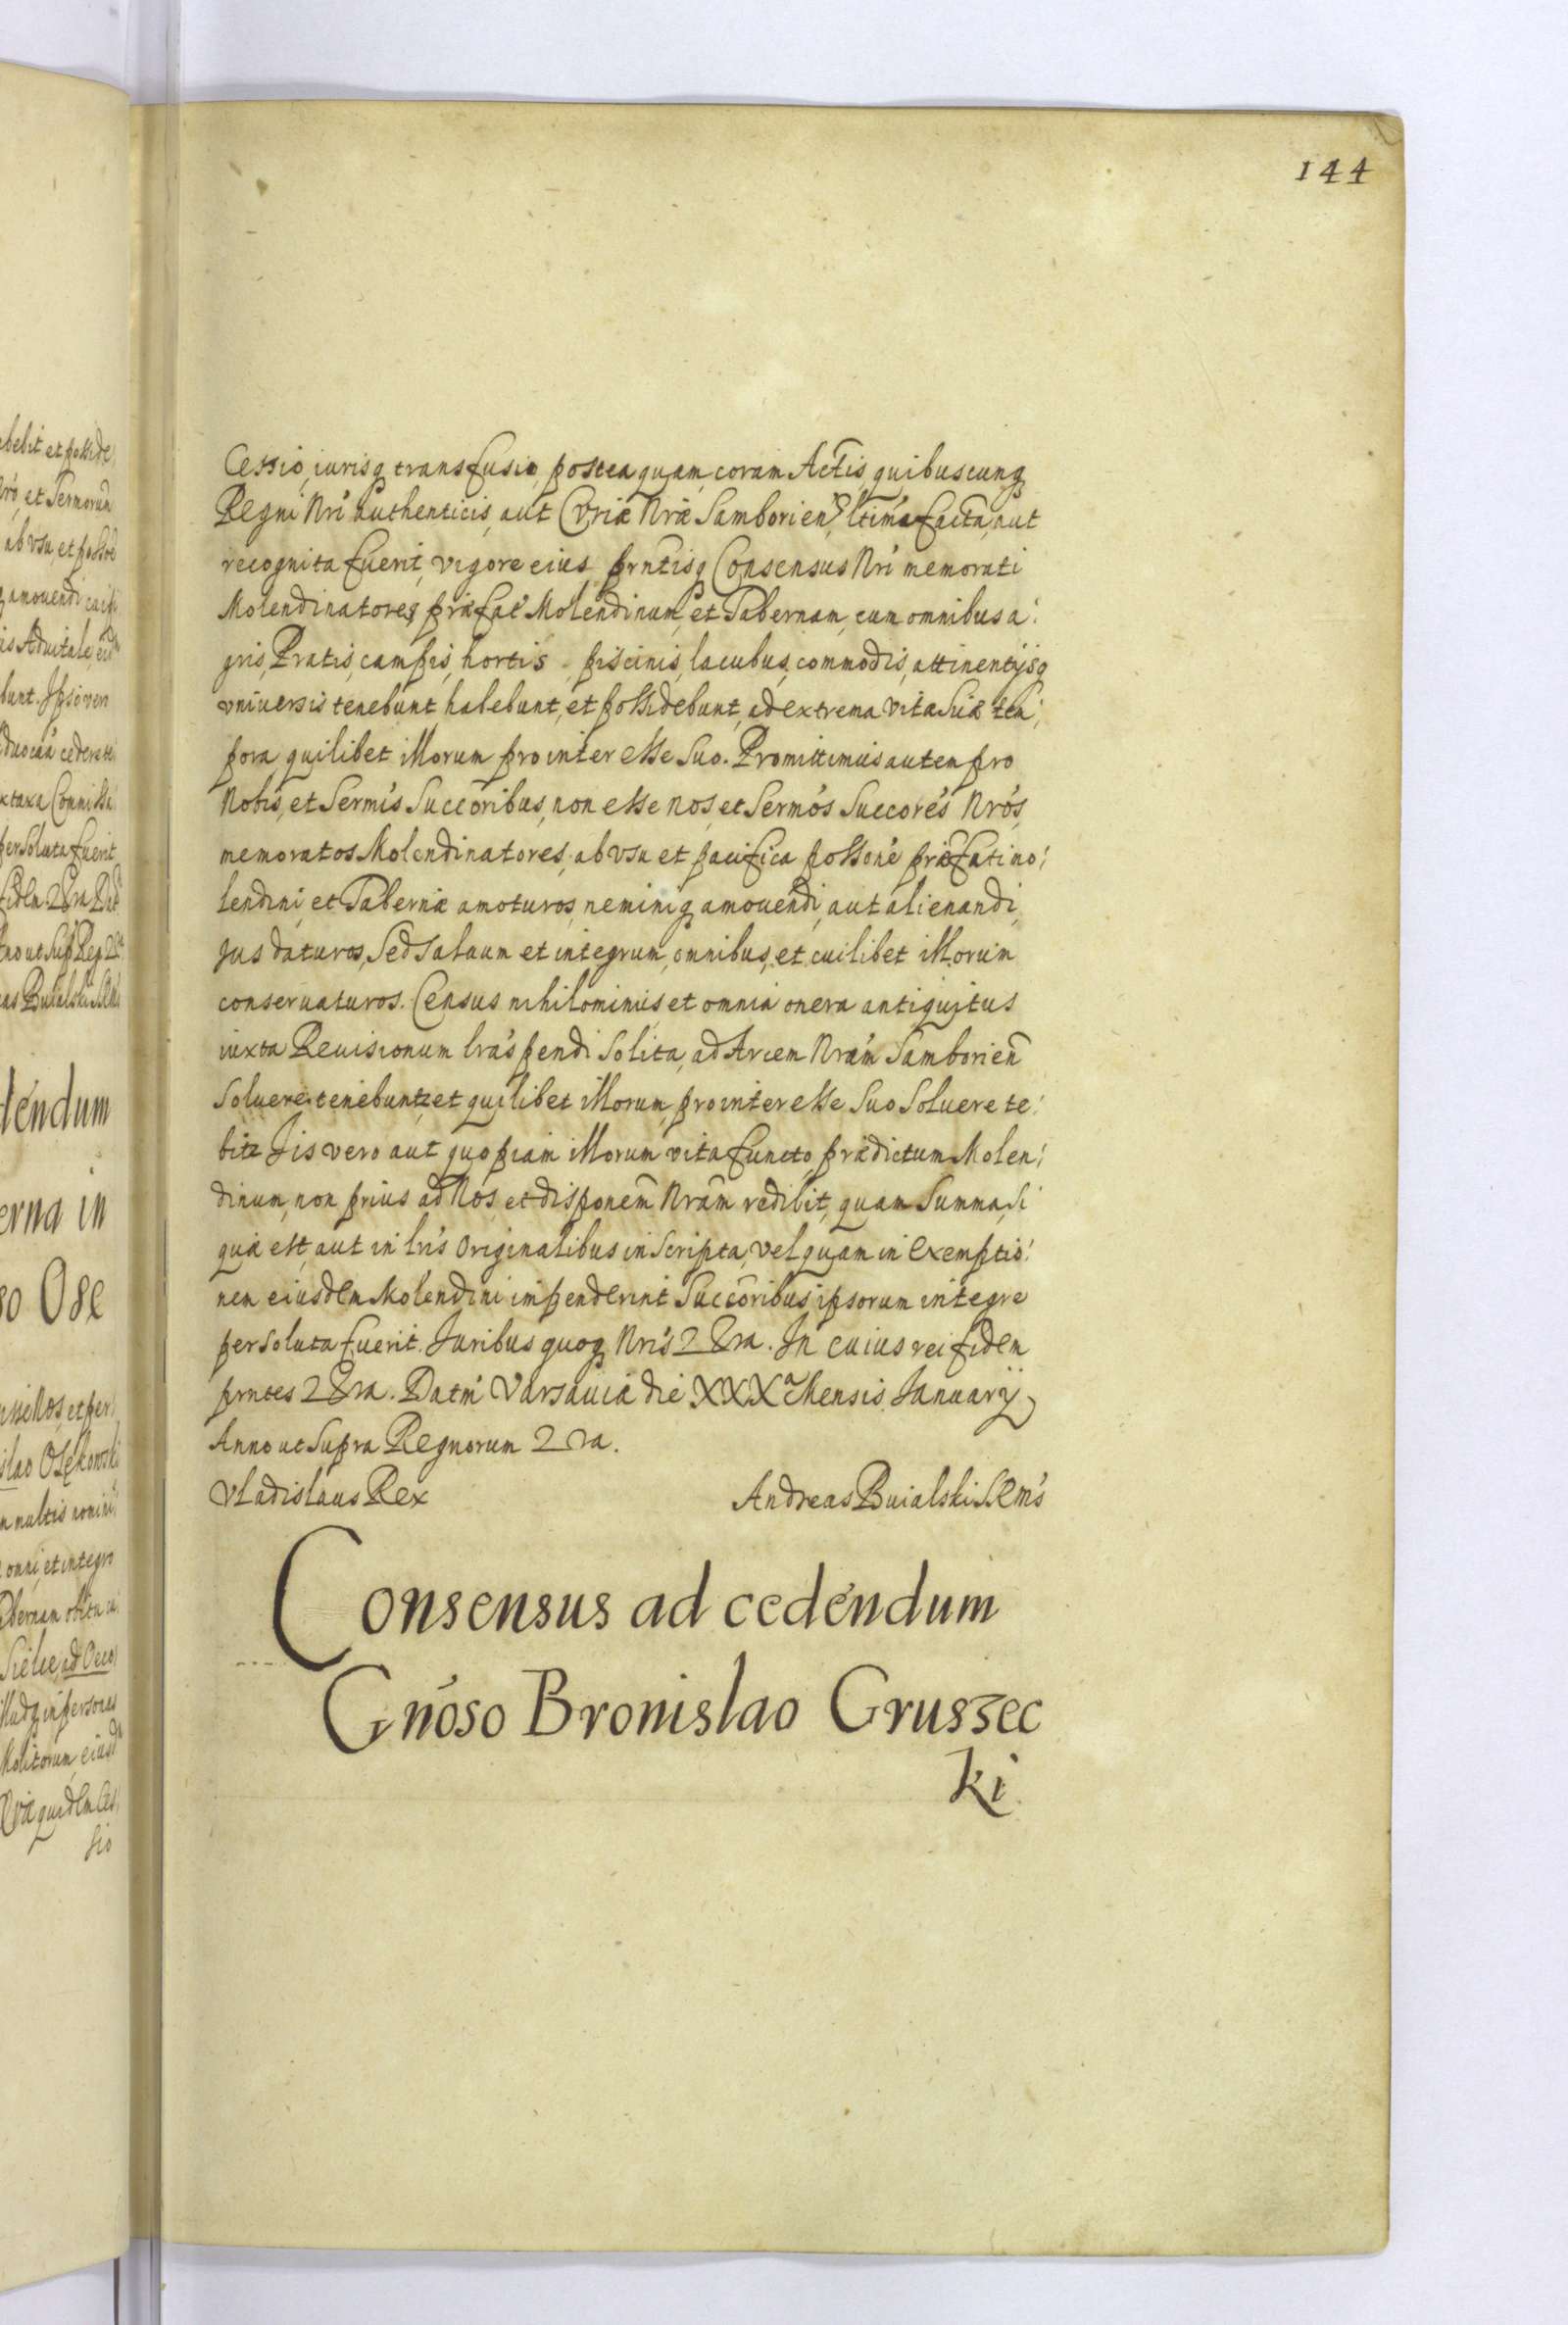 144
Cessio, iurisq transfusio, posteaquam, coram Actis, quibuscunq
Regni Nri authenticis, aut Curiæ Nræ Samborien, Vltima facta, aut
recognita fuerit, vigore eius prntisq Consensus Nri memorati
Molendinatores, præfat Molendinum, et Tabernam, cum omnibus a:
gris, Pratis, campis, hortis, piscinis, lacubus, commodis, attinentijsq
vniuersis tenebunt habebunt, et possidebunt, ad extrema vitæ suæ tem:
pora quilibet illorum pro interesse suo. Promittimus autem pro
Nobis, et Sermis Succoribus, non esse nos, et Sermos Succores Nros,
memoratos Molendinatores, ab vsu et pacifica possone præfati mo:
lendini, et Tabernæ amoturos, neminiq amouendi, aut alienandi,
Jus daturos, Sed saluum et integrum, omnibus, et cuilibet illorum
conseruaturos. Census nihilominus et omnia onera antiquitus
iuxta Reuisionum lras pendi solita, ad Arcem Nram Samborien
soluere tenebuntr et quilibet illorum, pro interesse suo soluere te:
bitr Iis vero aut quopiam illorum vita functo, prædictum Molen:
dinum, non prius ad Nos, et disponem Nram redibit, quam Summa, si
qua est, aut in lris Originalibus inscripta, vel quam in exemptio:
nem eiusdem Molendini impenderint Succoribus ipsorum integre
persoluta fuerit. Juribus quoq Nris 2 &ra. In cuius rei fidem
prntes 2 &ra. Datm Varsauiæ die XXXa Mensis Januarij
Anno ut supra Regnorum 2 ra.
Vladislaus Rex Andreas Buialski SRMs
Consensus ad cedendum
Gnoso Bronislao Gruszec
ki